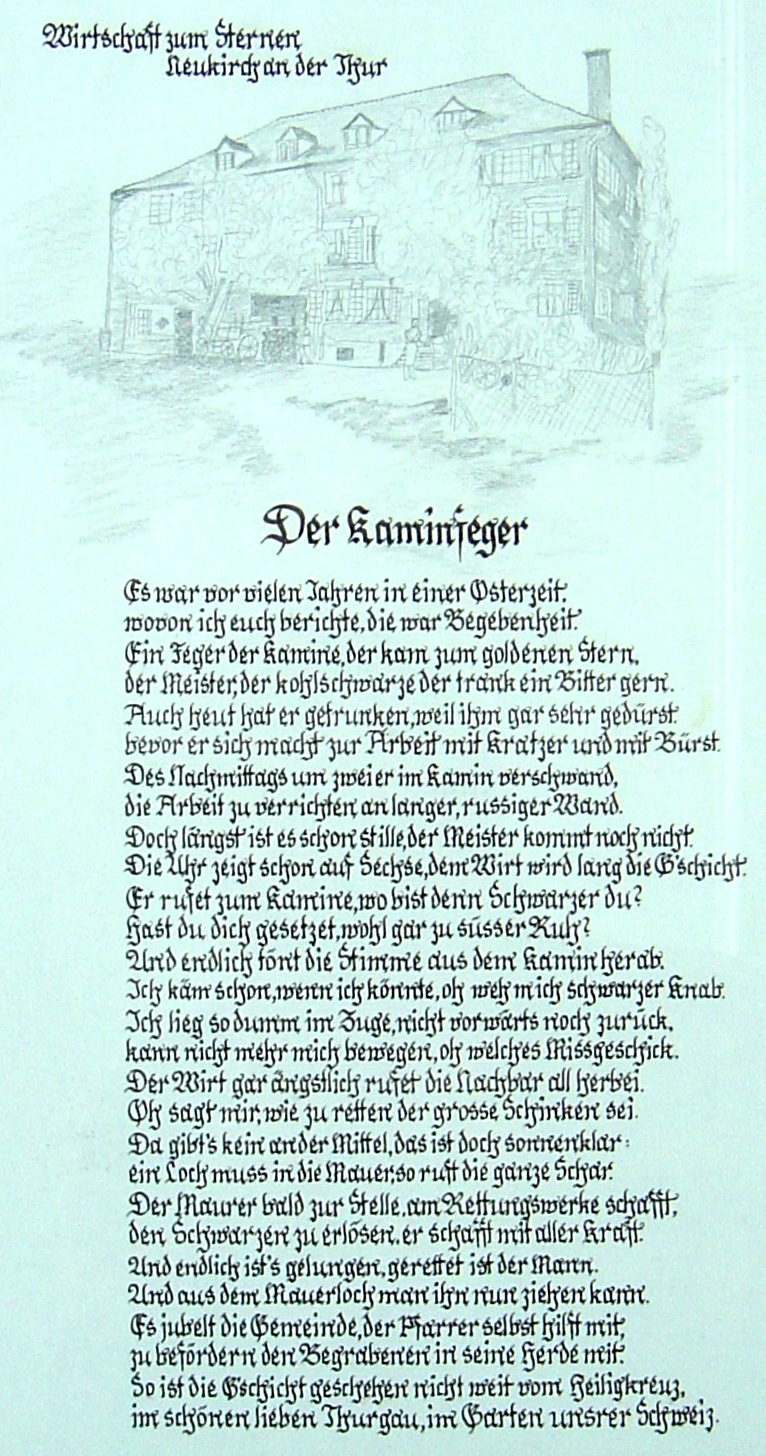 Wirtschaft zum Sternen
Neukirch an der Thur
Der Kaminfeger
Es war vor vielen Jahren in einer Osterzeit,
wovon ich euch berichte, die war Begebenheit.
Ein Feger der Kamine, der kam zum goldenen Stern,
der Meister, der kohlschwarze der trank ein Bitter gern.
Auch heut hat er getrunken, weil ihm gar sehr gedürst
bevor er sich macht zur Arbeit mit Kratzer und mit Bürst.
Des Nachmittags um zwei er im Kamin verschwand,
die Arbeit zu verrichten an langer, russiger Wand.
Doch längst ist es schon stille, der Meister kommt noch nicht.
Die Uhr zeigt schon auf Sechse, dem Wirt wird lang die G'schicht.
Er rufet zum Kamine, wo bist denn Schwarzer du?
Hast du dich gesetzet, wohl gar zu süsser Ruh?
Und endlich tönt die Stimme aus dem Kamin herab.
Ich käm schon, wenn ich könnte, oh weh mich schwarzer Knab.
Ich lieg so dumm im Zuge, nicht vorwärts noch zurück,
kann nicht mehr mich bewegen, oh welches Missgeschick.
Der Wirt gar ängstlich rufet die Nachbar all herbei.
Oh sagt mir, wie zu retten der grosse Schinken sei.
Da gibt's kein ander Mittel, das ist doch sonnenklar:
ein Loch muss in die Mauer, so ruft die ganze Schar.
Der Maurer bald zur Stelle, am Rettungswerke schafft,
den Schwarzen zu erlösen, er schafft mit aller Kraft.
Und endlich ist's gelungen, gerettet ist der Mann.
Und aus dem Mauerloch man ihn nun ziehen kann.
Es jubelt die Gemeinde, der Pfarrer selbst hilft mit,
zu befördern den Begrabenen in seine Herde mit.
So ist die Gschicht geschehen nicht weit vom Heiligkreuz,
im schönen lieben Thurgau, im Garten unsrer Schweiz.